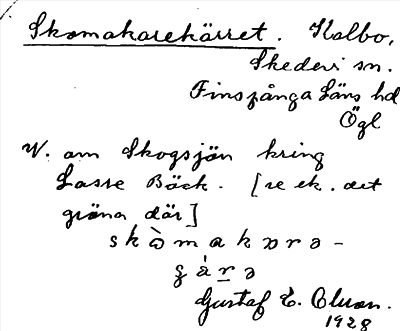 Skomakarekärret. Kalbo,
Skedevi sn.
Finspånga Läns hd
Ögl
V. om Skogsjön kring
Lasse Bäck. [se ek. det
gröna där]
skò̀makɒrə-
gárə
Gustaf E. Olsson.
1928